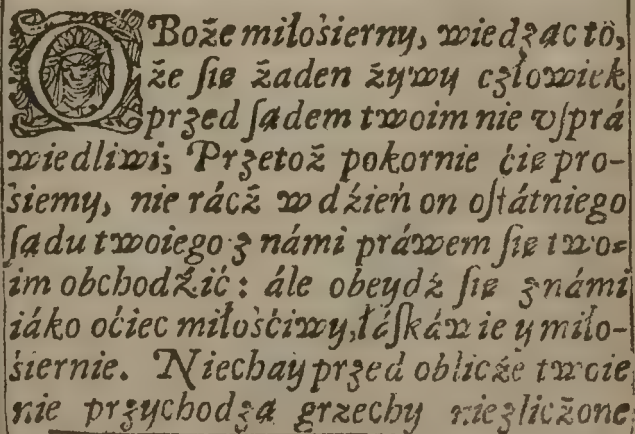 O Boże miłośierny, wiedząc to,
że ſię żaden żywy człowiek
przed ſądem twoim nie vſprá
wiedliwi; Przetoż pokornie ćię pro-
śiemy, nie rácż w dźień on oſtátniego
ſądu twoiego z námi práwem ſię two=
im obchodźić: ále obeydź ſię z námi
iáko oćiec miłośćiwy, łáſkáwie y miło-
śiernie. Niechay przed oblicże twoie
nie przychodzą grzechy niezliczone